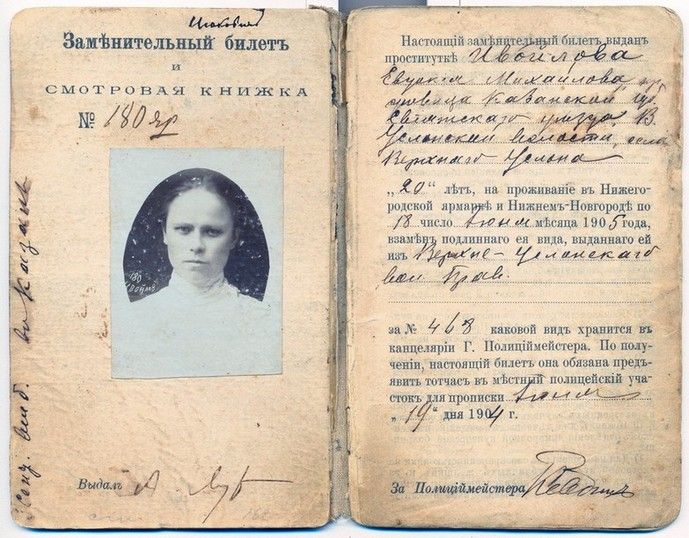 Замѣнительный билетъ
и
СМОТРОВАЯ КНИЖКА
№ 180 яр
180
Выдалъ
Настоящій замѣнительный билетъ выданъ
проституткѣ Ивойлова
Евдокія Михайлова, кр
Казанской гу.
Свіяжскаго уѣзда, В.
Услонской волости, села
Верхняго Услона
„20“ лѣтъ, на проживаніе въ Нижего-
родской ярмаркѣ и Нижнемъ-Новгородѣ по
18 число Іюня мѣсяца 1905 года,
взамѣнъ подлиннаго ея вида, выданнаго ей
изъ Верхне-Услонскаго
вол Прав.
за № 468 каковой видъ хранится въ
канцеляріи Г. Полиціймейстера. По полу-
ченіи, настоящій билетъ она обязана предъ-
явить тотчасъ въ мѣстный полицейскій уча-
стокъ для прописки Іюня
„19“ дня 1904 г.
За Полиціймейстера